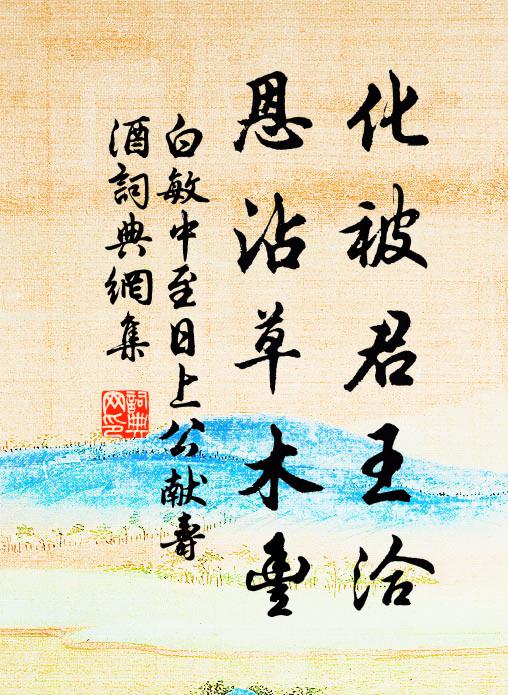 化被君王洽
恩沾草木豊
白敏中至日上公献壽
酒詞典網集
詞典
网印